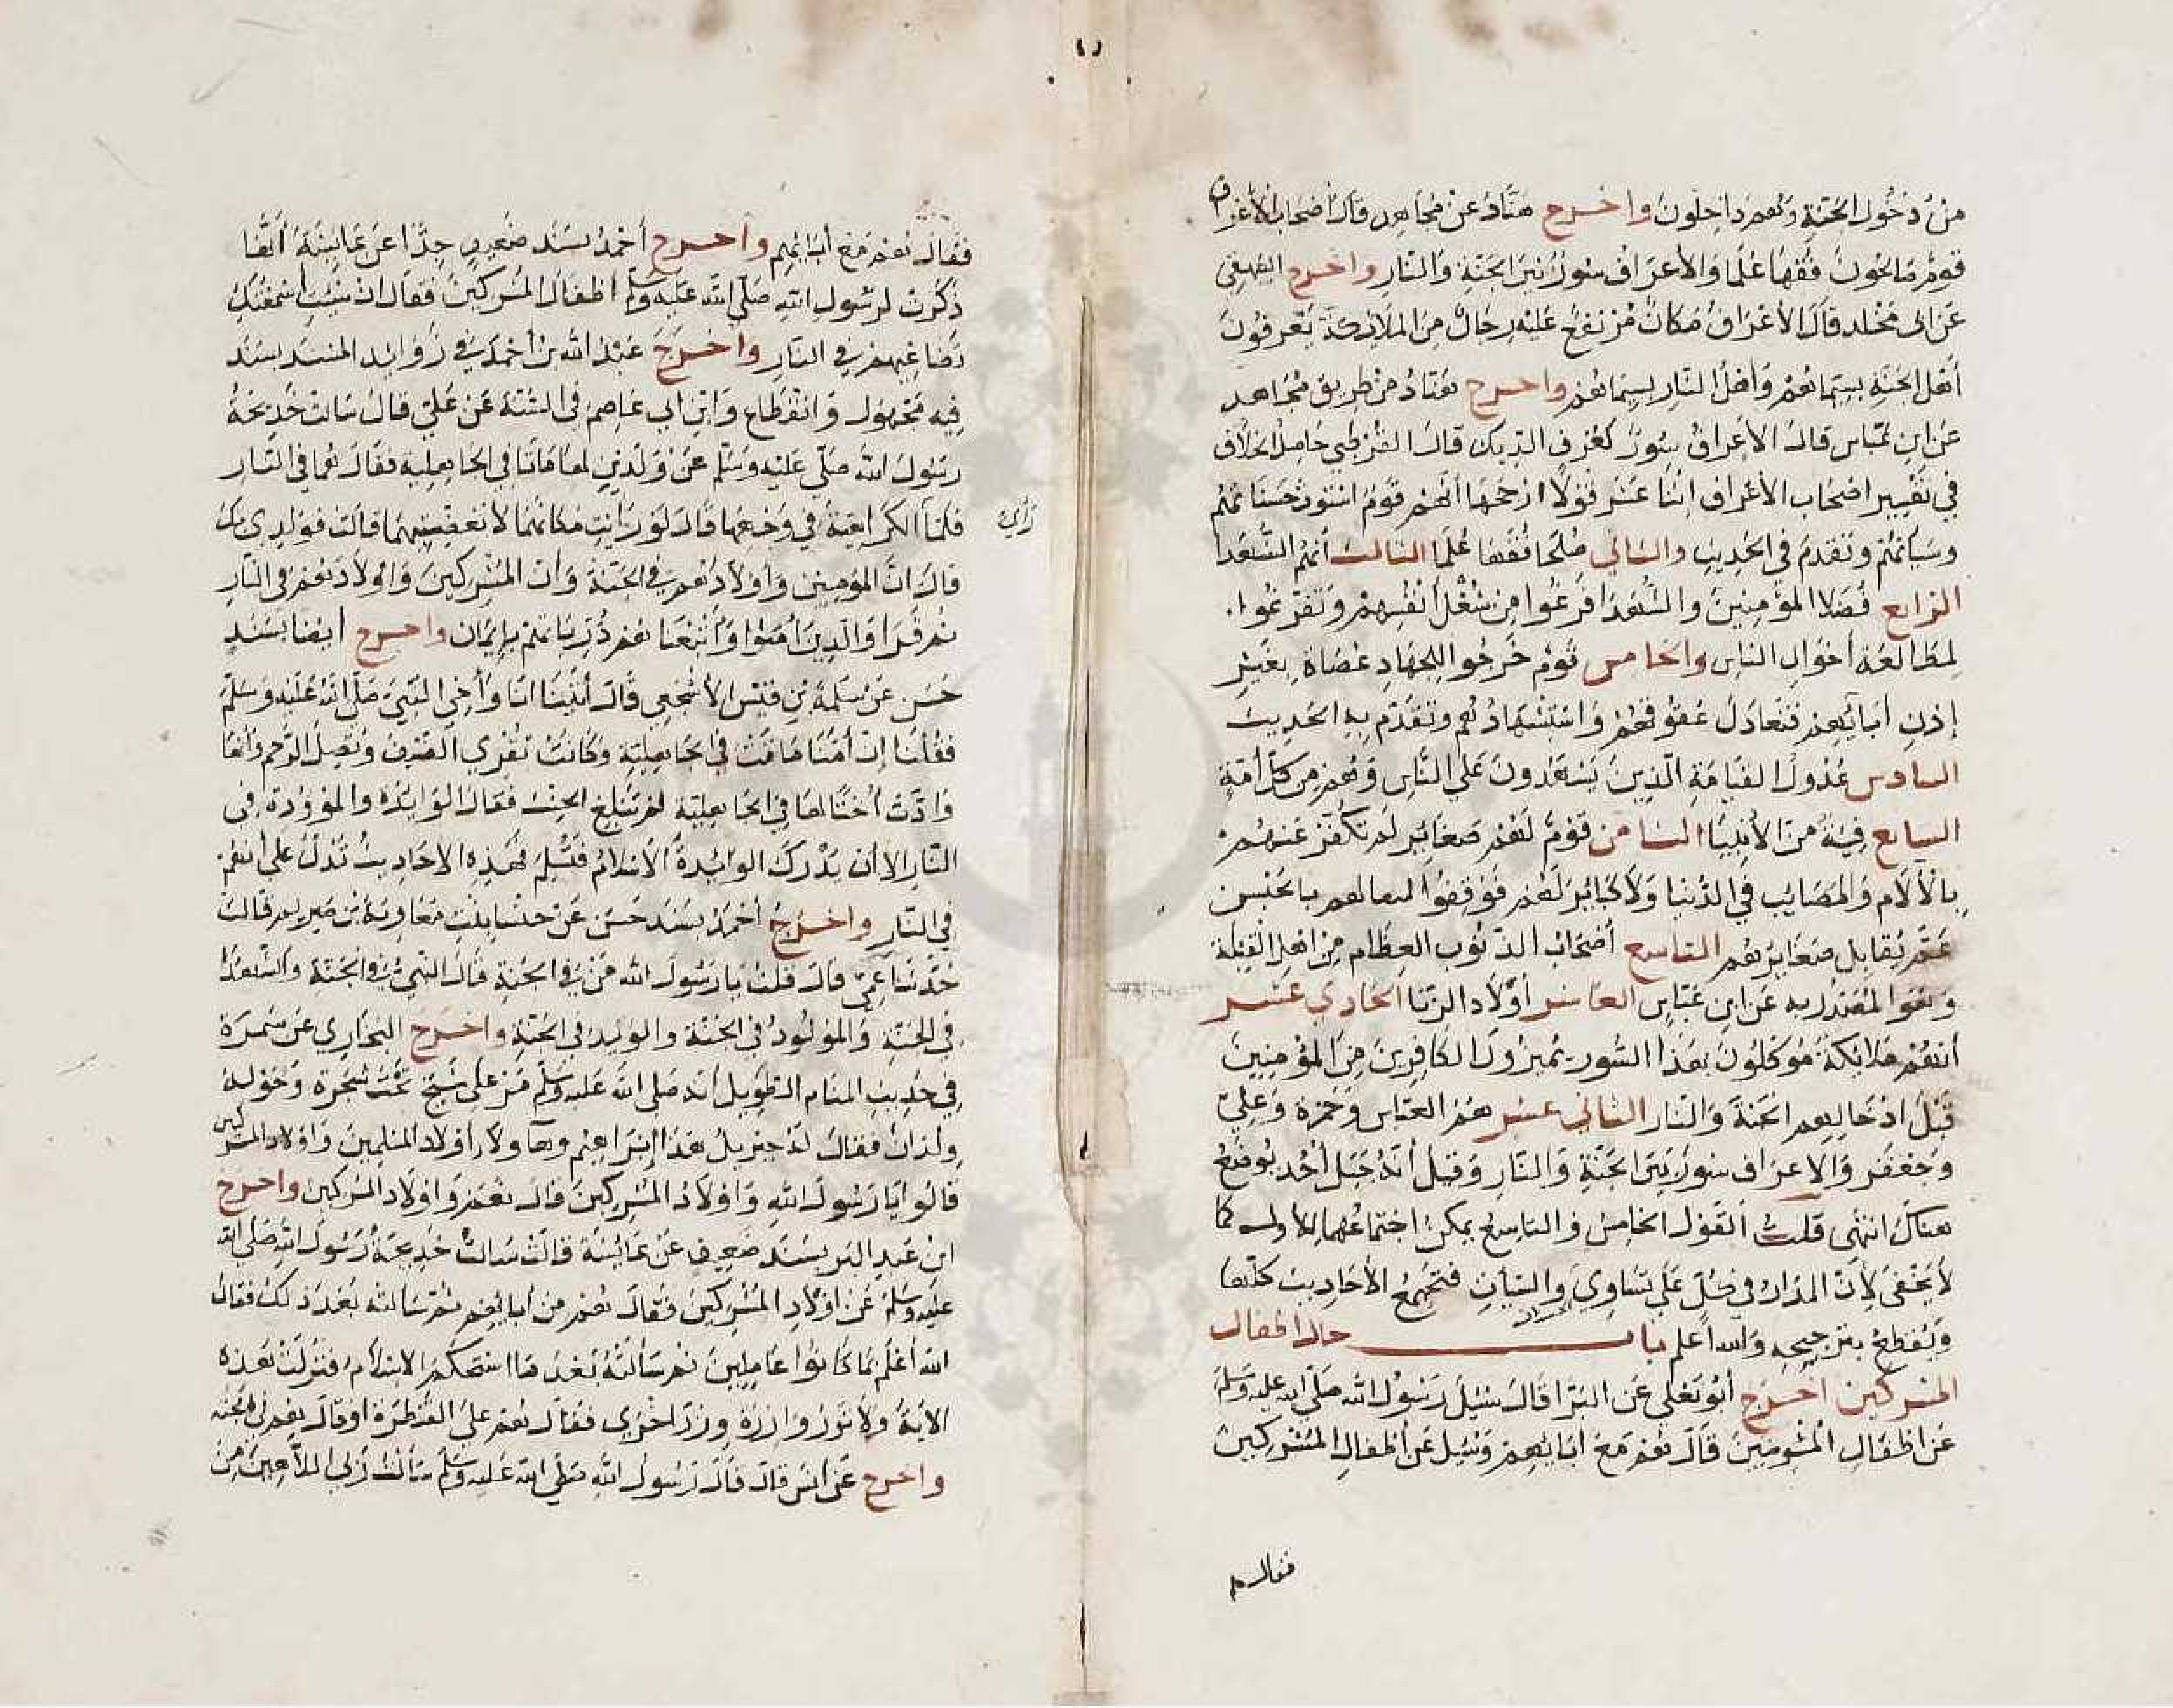 من دخول الجنة وهم داخلون واخرج هناد عن مجاهد قال أصحاب الأعراف
قوم صالحون فقها علما والأعراف سور بين الجنة والنار واخرج البيهقي
عن ابي مجلد قال الأعراف مكان مرتفع عليه رجال من الملائكة يعرفون
أهل الجنة بسيماهم وأهل النار بسيماهم واخرج هناد من طريق مجاهد
عن ابن عباس قال الأعراف سور كعرف الديك قال القرطبي حاصل الخلاف
في تفسير اصحاب الأعراف اثنا عشر قولا ارجحها أنهم قوم استوت حسناتهم
وسياتهم وتقدم في الحديث والثاني صلحا فقها علما الثالث أنهم الشهدا
الرابع فضلا المؤمنين والشهدا فرغوا من شغل أنفسهم وتفرغوا
لمطالعة أحوال الناس والخامس قوم خرجوا للجهاد عصاة بغير
إذن أبائهم فتعادل عقوقهم واستشهادهم وتقدم به الحديث
السادس عدول القيامة الذين يشهدون على الناس وهم من كل أمة
السابع فية من الأنبيا الثامن قوم لهم صغائر لم تكفر عنهم
بالألام والمصايب في الدنيا ولا كبائر لهم فوقفوا لينالهم بالحبس
غم يقابل صغايرهم التاسع أصحاب الذنوب العظام من أهل القبلة
وهو المصدر به عن ابن عباس العاشر أولاد الزنا الحادي عشر
أنهم ملائكة موكلون بهذا السور يميزون الكافرين من المؤمنين
قبل ادخالهم الجنة والنار الثاني عشر هم العباس وحمزة وعلي
وجعفر والاعراف سور بين الجنة والنار وقيل أنه جبل أحد يوضع
هناك انتهى قلت القول الخامس والتاسع يمكن اجتماعهما للأول كما
لا يخفى لأن المدار في كل على تساوي والسيات فتجمع الأحاديث كلها
ويقطع بترجيحه والله أعلم باب حال اطفال
المشركين أخرج أبو يعلى عن البرا قال سئل رسول الله صلى الله عليه وسلم
عن اطفال المؤمنين قال هم مع ابايهم وسئل عن أطفال المشركين
فقال هم
فقال هم مع أبائهم وأخرج أحمد بسند ضعيف جدا عن عايشة أنها
ذكرت لرسول الله صلى الله عليه وسلم اطفال المشركين فقال ان شيت أسمعتك
تضاغيهم في النار وأخرج عبد الله بن أحمد في زوايد المسند بسند
فيه مجهول وانقطاع وابن ابي عاصم في السنة عن علي قال سالت خديجة
رسول الله صلى عليه وسلم عن ولدين لها ماتا في الجاهلية فقال هما في النار
رأى
فلما الكراهية في وجهها قال لو رأيت مكانهما لأبغضتيهما قالت فولدي منك
قال ان المؤمنين وأولادهم في الجنة وان المشركين وأولادهم في النار
ثم قرا والذين أمنوا وأتبعنا هم ذرياتهم بإيمان واخرج أيضا بسند
حسن عن سلمة بن قيس الأشجعي قال أتينا انا وأخي النبي صلى الله عليه وسلم
فقلنا إن أمنا ماتت في الجاهلية وكانت تقري الضيف وتصل الرحم وأنها
وادت أختا لها في الجاهلية لم تبلغ الحنث فقال الوايدة والموؤدة في
النار الا أن يدرك الوايدة الأسلام فتسلم فهذه الاحاديث تدل على أنهم
في النار واخرج أحمد بسند حسن عن حنسا بنت معاوية بن صريم قالت
حدثنا عمي قال قلت يا رسول الله من في الجنة قال النبي في الجنة والشهدا
في الجنة والمولود في الجنة والوئيد في الجنة واخرج البخاري عن سمرة
في حديث المنام الطويل أنه صلى الله عليه وسلم مر على شيخ تحت شجرة وحوله
ولدان فقال له جبريل هذا إبراهيم وهاولاء أولاد المسلمين وأولاد المشركين
قالوا يا رسول الله وأولاد المشركين قال نعم وأولاد المشركين واخرج
ابن عبد البر بسند ضعيف عن عايشة قالت سالت خديجة رسول الله صلى الله
عليه وسلم عن اولاد المشركين فقال هم من أبايهم ثم سالته بعد ذلك فقال
الله أعلم بما كانوا عاملين ثم سألته بعد ما استحكم الاسلام فنزلت هذه
الاية ولا تزر وازرة وزر اخرى فقال هم على الفطرة اوقال هم في الجنة
واخرج عن انس قال قال رسول الله صلى الله عليه وسلم سألت ربي اللاهين من